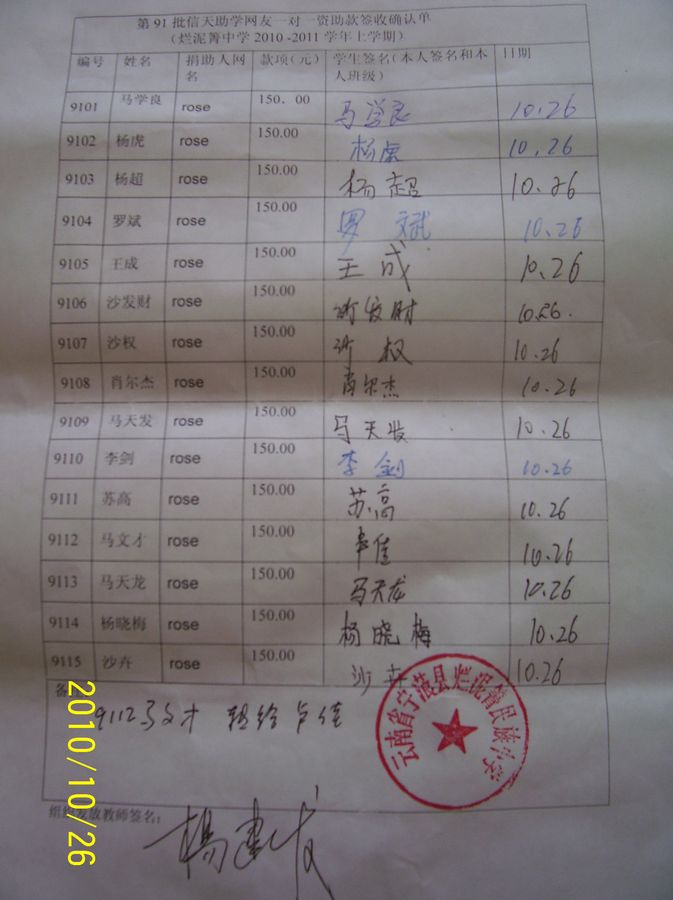 第 91 批信天助学网友一对一资助款签收确认单
（烂泥箐中学 2010 -2011 学年上学期）
编号 姓名 捐助人网名 款项(元) 学生签名(本人签名和本人班级) 日期
9101 马学良 rose 150．00 马学良 10.26
9102 杨虎 rose 150.00 杨虎 10.26
9103 杨超 rose 150.00 杨超 10.26
9104 罗斌 rose 150.00 罗斌 10.26
9105 王成 rose 150.00 王成 10.26
9106 沙发财 rose 150.00 沙发财 10.26.
9107 沙权 rose 150.00 沙权 10.26
9108 肖尔杰 rose 150.00 肖尔杰 10.26
9109 马天发 rose 150.00 马天发 10.26
9110 李剑 rose 150.00 李剑 10.26
9111 苏高 rose 150.00 苏高 10.26
9112 马文才 rose 150.00 卢佳 10.26
9113 马天龙 rose 150.00 马天龙 10.26
9114 杨晓梅 rose 150.00 杨晓梅 10.26
9115 沙卉 rose 150.00 沙卉 10.26
备
9112马文才 转给卢佳
云南省宁蒗县烂泥箐民族中学
组织发放教师签名：
楊建发
2010/10/26